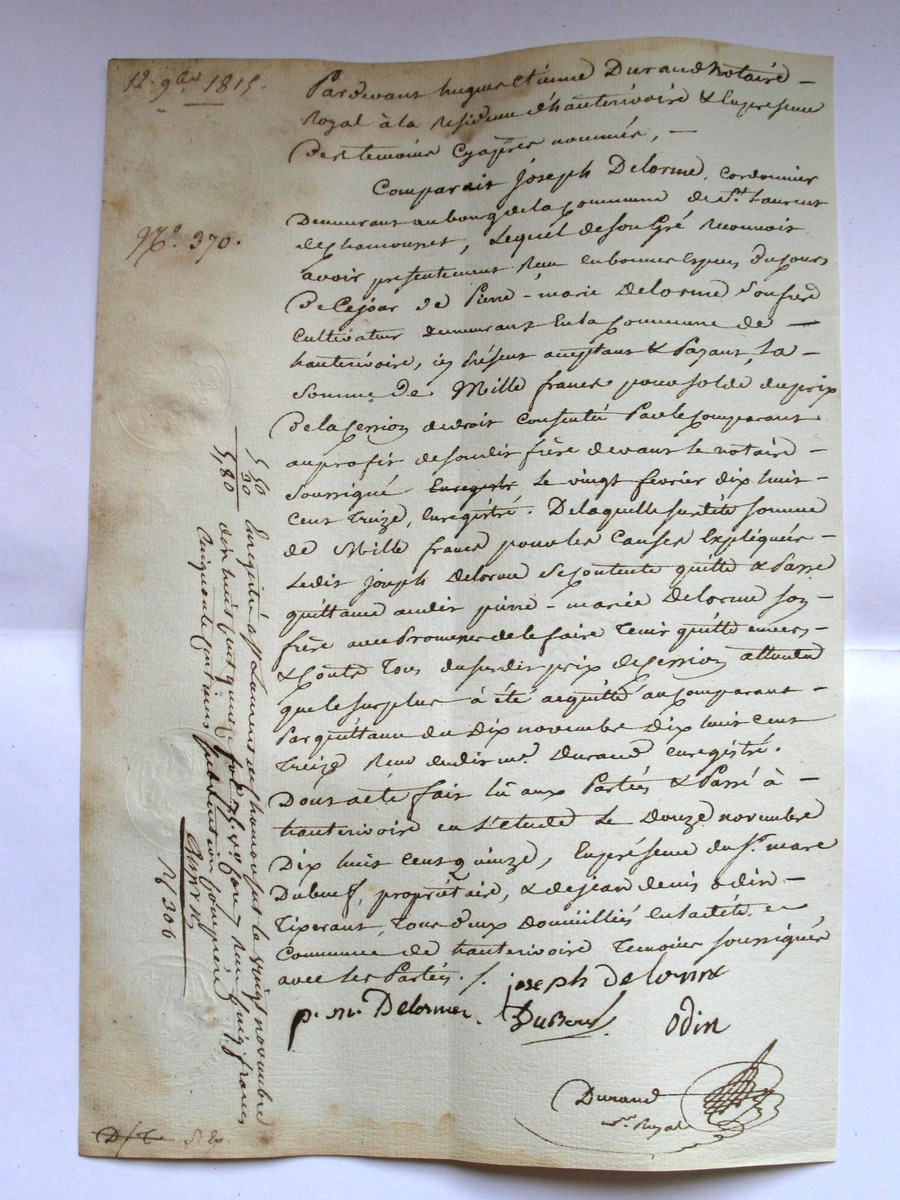 12. 9bre 1815.
N.° 370.
Pardevant hugues Etienne Durand Notaire –
Royal à la Residence d'hauterivoire & En presence
des temoins Cyaprès nommés, –
Comparait Joseph Delorme, Cordonnier
Demeurant au bourg de la Commune de St. Laurent
de Chamousset, Lequel de Son Gré reconnoit
avoir presentement Reçu en bonnes Especes du jours
De Ce jour de Pierre-marie Delorme Son frere
Cultivateur Demeurant En la Commune de –
hauterivoire, icy Présent acceptant & Payant, La –
Somme De Mille francs pour solde du prix
De la Cession de droit Consentie Par le Comparant
au profit de Son dit frère devant le notaire –
Soussigné Enregistré Le vingt février dix huit –
Cent Treize, Enregistré. De laquelle susdite somme
de Mille francs pour les Causes Expliquées –
Ledit Joseph Delorme Se Contente quitte & Passe
quittance audit pierre-marie Delorme Son –
frère avec Promesse de le faire Tenir quitte envers –
& Contre Tous du susdit prix de Cession attendu
que le surplus à été acquitté au Comparant –
Par quittance du Dix novembre Dix huit Cent
Treize Reçu dudit me. Durand Enregistré.
Dont acte fait Lû aux Parties & Passé à –
hauterivoire en L'etude Le Douze novembre
Dix huit Cent quinze, En présence du Sr. marc
Dubeuf, propriétaire, & de jean denis odin –
Tixerant, Tous deux Domiciliés en la dite
Commune de hauterivoire Temoins soussignés
avec les Parties. /.
joseph delorme
p. m. Delorme.
Dubeuf
Odin
Durand
Nre. Royal
5 50
30
5,80
Enregistré à St Laurent de Chamousset le vingt novembre
dix huit cent quinze, reçu cinq francs
cinquante centimes subvention comprise
N 306
S. Ex.